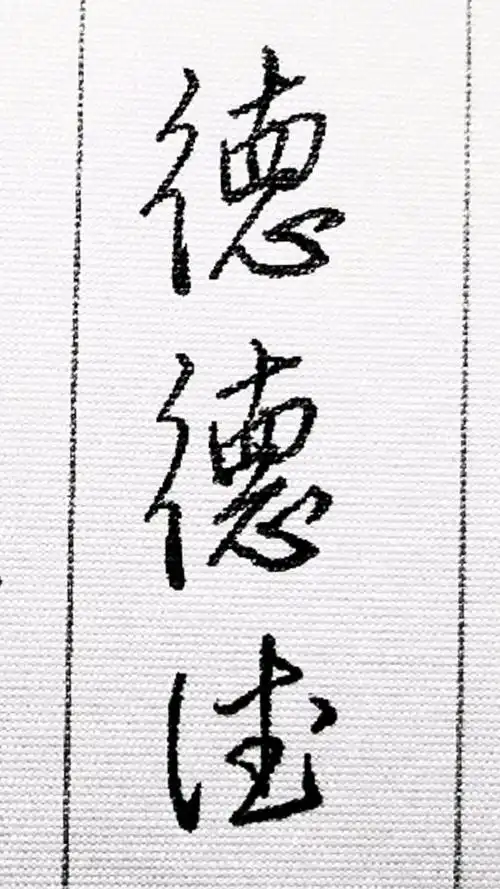 德德德